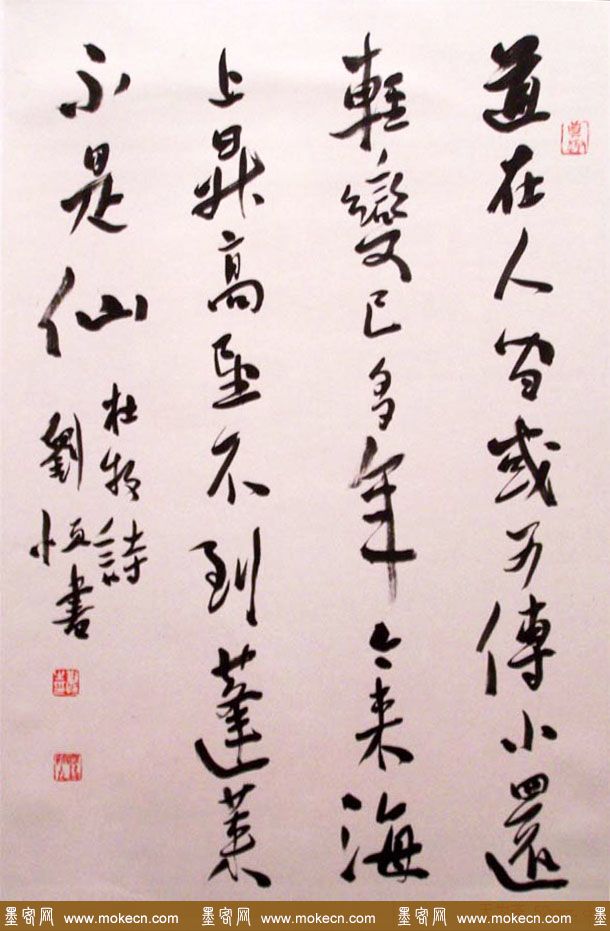 道在人間或可傳小還
輕變已多年今来海
上昇高望不到蓬莱
不是仙
杜牧詩
劉恒書
墨客网 www.mokecn.com 墨客网 www.mokecn.com 墨客网 www.mokecn.com